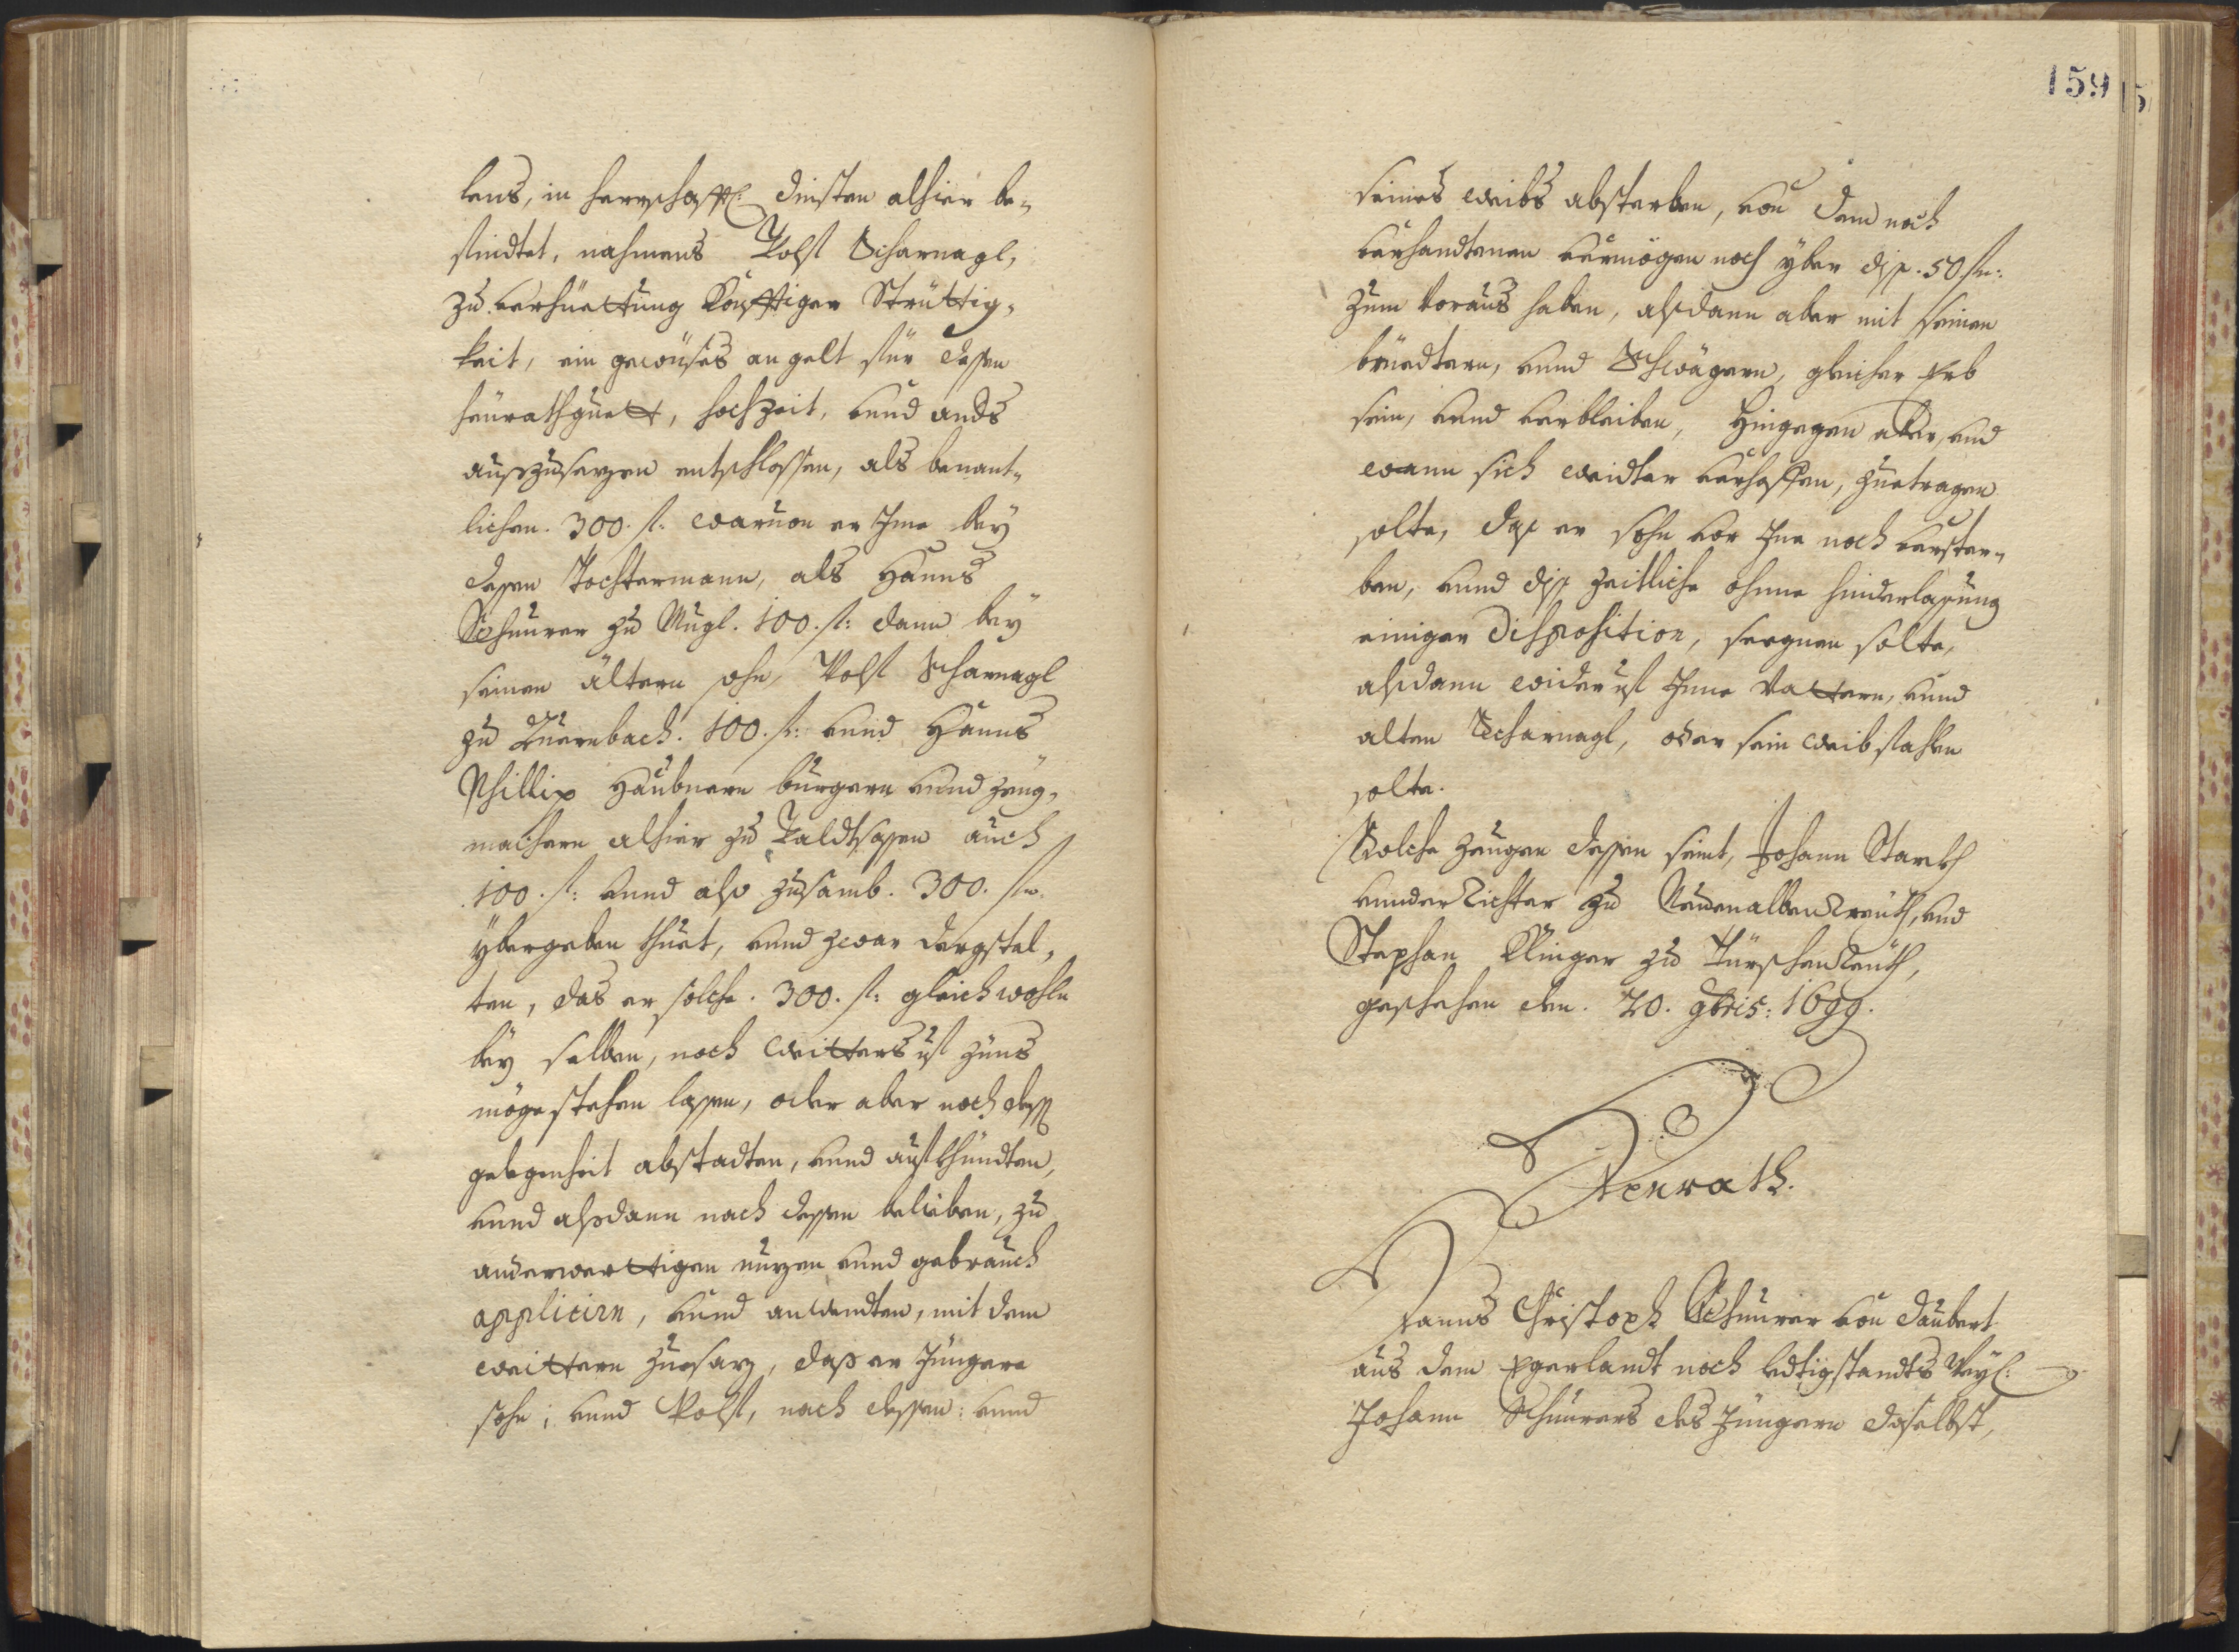 lens, in herrschafftl: diensten alhier be-
findtet, nahmens Wolf Scharnagl,
zu verhüettung künfftiger Strüttig-
keit, ein gewüses an gelt für dessen
heürathguett, hochzeit, unnd ands
auszusezen entschlossen, als benant-
lichen. 300. fl: warvon er Ime bey
dessen Tochtermann, als Hanns
Schnurer zu Mugl. 100. fl: dann bey
seinen ältern sohn, Wolf Scharnagl
zu Quernbach. 100. fl: unnd Hanns
Phillip Haubnern burgern unnd zeug-
machern alhier zu Waldtsassen auch
100. fl: unnd also zusamb. 300. fl.
ÿbergeben thuet, unnd zwar dergstal-
ten, das er solche. 300. fl: gleichwohln
beÿ selben, noch weitters uf züns
möge stehen lassen, oder aber noch dess
gelegenheit abstadten, unnd aufkhündten,
unnd alsdann nach dessen belieben, zu
anderwerttigen nuzen unnd gebrauch
applicirn, unnd anwendten, mit dem
weittern zuesaz, dass er Jüngere
sohn; unnd Wolf, nach dessen: unnd
159
seines weibs absterben, von dem noch
verhandtenen vermögen noch ÿber diss. 50 fl:
zum voraus haben, alsdann aber mit seinen
brüedtern, unnd Schwägern, gleicher Erb
sein, unnd verbleiben, Hingegen aber, und
wann sich weidter verhoffen, zuetragen
solte, das er sohn vor Ime noch verster-
ben, unnd diss zeitliche ohnne hinderlassung
einiger disposition, seegnen solte,
alsdann wider uf Inne Vattern, unnd
alten Scharnagl, oder sein weib fahlen
solte.
Solche zeugen dessen seint, Johann Starckh
unnder Richter zu Neuenalbenreuth, und
Stephan Klinger zu Türschenreuth,
geschehen den. 20. 9bris: 1699.
Heÿrath.
Hanns Christoph Schnurer von daubert
aus dem Egerlandt noch ledtigstandts Weÿl:
Johann Schnurers des Jüngern daselbst,